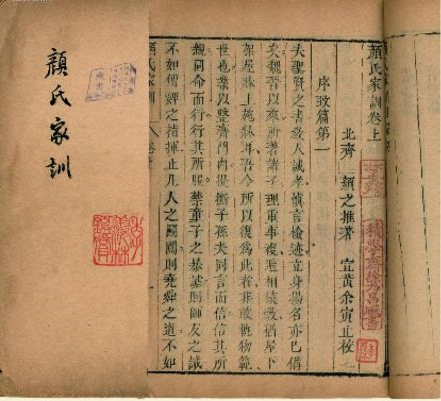 顏氏家訓卷上
北齊 顏之推著 宜黃余寅止校
序致篇第一
夫聖賢之書教人誠孝慎言檢迹立身揚名亦已備
矣魏晉以來所著諸子理重事複遞相模斆猶屋下
架屋牀上施牀耳吾今所以復爲此者非敢軌物範
世也業以整齊門內提撕子孫夫同言而信信其所
親同命而行行其所服禁童子之暴謔則師友之誡
不如傅婢之指揮止凡人之鬭鬩則堯舜之道不如
顏氏家訓
顏氏家訓